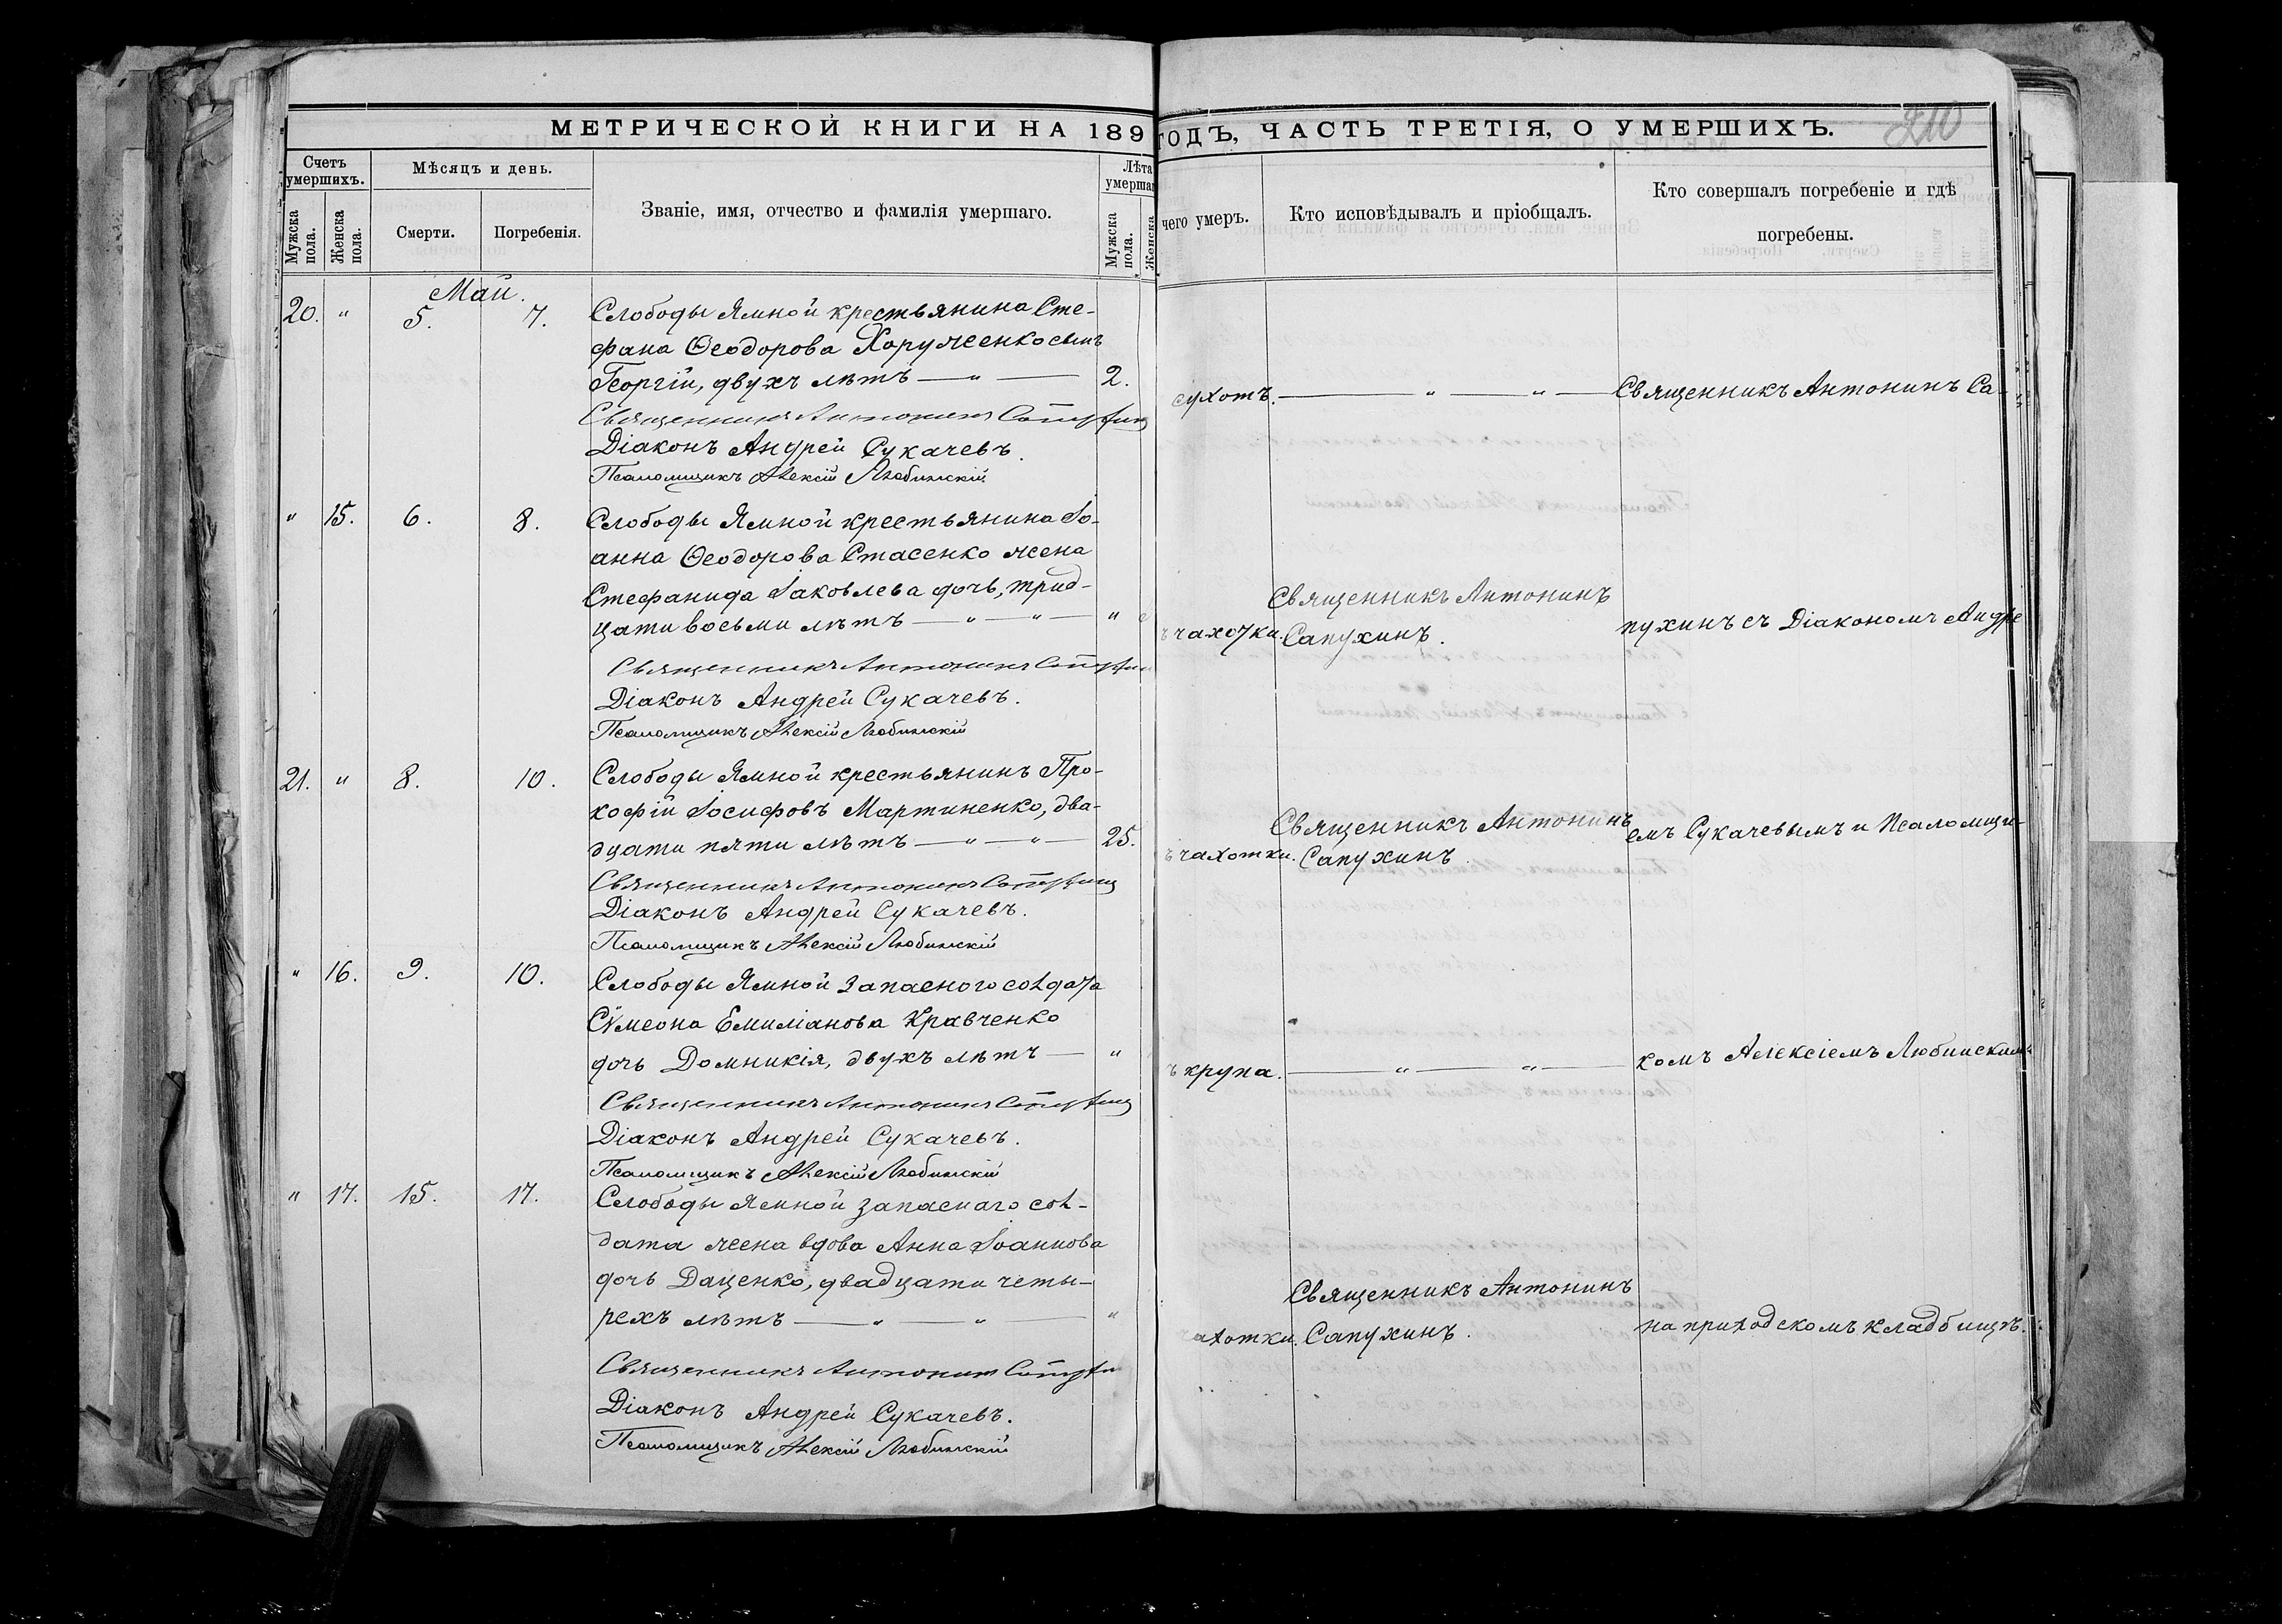 МЕТРИЧЕСКОЙ КНИГИ НА 189
ГОДЪ, ЧАСТЬ ТРЕТІЯ, О УМЕРШИХЪ.
210
Счетъ умершихъ.
Мужска пола.
Женска пола.
Мѣсяцъ и день.
Смерти.
Погребенія.
Званіе, имя, отчество и фамилія умершаго.
Лѣта
умерша
Мужска пола.
Женска
чего умеръ.
Кто исповѣдывалъ и пріобщалъ.
Кто совершалъ погребеніе и гдѣ
погребены.
Май.
20. " 5. 7. Слободы Ямной крестьянина Сте-
фана Ѳеодорова Хоруженко сынъ
Георгій, двухъ лѣтъ — " — 2.
сухотъ. — " — " —
Священникъ Антонинъ Са-
Священникъ Антонинъ Сапухинъ
Діаконъ Андрей Сукачевъ.
Псаломщикъ Алексій Любинскій
" 15. 6. 8. Слободы Ямной крестьянина Іо-
анна Ѳеодорова Стасенко жена
Стефанида Іаковлева дочь, трид-
цати восьми лѣтъ — " — " — "
ъ чахотки.
Священникъ Антонинъ
Сапухинъ.
пухинъ съ Діакономъ Андре
Священникъ Антонинъ Сапухин
Діаконъ Андрей Сукачевъ.
Псаломщикъ Алексій Любинскій
21. " 8. 10. Слободы Ямной крестьянинъ Про-
кофій Іосифовъ Мартиненко, два-
дцати пяти лѣтъ — " — " — 25.
ъ чахотки.
Священникъ Антонинъ
Сапухинъ
емъ Сукачевымъ и Псаломщи-
Священникъ Антонинъ Сапухинъ
Діаконъ Андрей Сукачевъ.
Псаломщикъ Алексій Любинскій
" 16. 9. 10. Слободы Ямной запасного солдата
Сѵмеона Емиліанова Кравченко
дочь Домникія, двухъ лѣтъ — "
ъ крупа. — " — " —
комъ Алексіемъ Любинскимъ
Священникъ Антонинъ Сапухинъ
Діаконъ Андрей Сукачевъ.
Псаломщикъ Алексій Любинскій
" 17. 15. 17. Слободы Ямной запаснаго сол-
дата жена вдова Анна Іоаннова
дочь Даценко, двадцати четы-
рехъ лѣтъ — " — " — "
ахотки.
Священникъ Антонинъ
Сапухинъ.
на приходскомъ кладбищѣ.
Священникъ Антонинъ Сапухи
Діаконъ Андрей Сукачевъ.
Псаломщикъ Алексій Любинскій